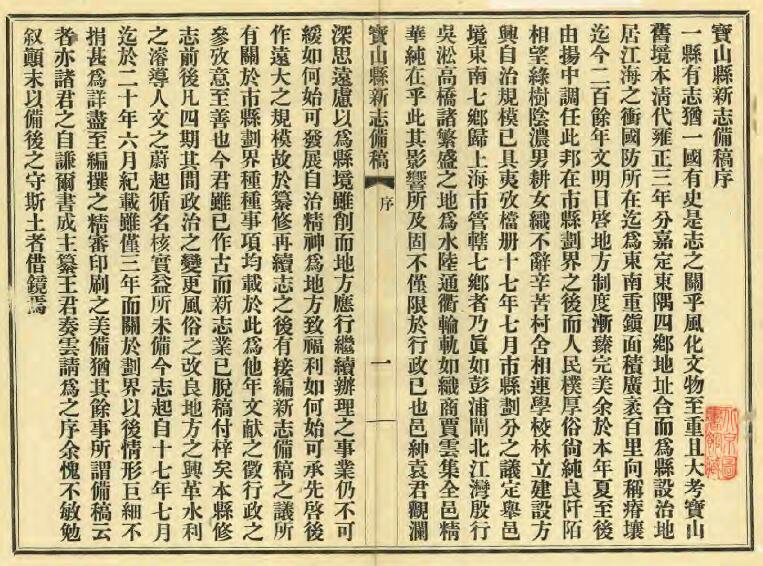 寶山縣新志備稿序
一縣有志猶一國有史是志之關乎風化文物至重且大考寶山
舊境本清代雍正三年分嘉定東隅四鄉地址合而為縣設治地
居江海之衝國防所在迄為東南重鎭面積廣袤百里向稱瘠壤
迄今二百餘年文明日啓地方制度漸臻完美余於本年夏至後
由揚中調任此邦在市縣劃界之後而人民樸厚俗尙純良阡陌
相望綠樹陰濃男耕女織不辭辛苦村舍相連學校林立建設方
興自治規模已具夷攷檔册十七年七月市縣劃分之議定舉邑
境東南七鄉歸上海市管轄七鄉者乃眞如彭浦閘北江灣殷行
吳淞高橋諸繁盛之地為水陸通衢輪軌如織商賈雲集全邑精
華純在乎此其影響所及固不僅限於行政已也邑紳袁君觀瀾
寶山縣新志備稿
序
一
深思遠慮以為縣境雖創而地方應行繼續辦理之事業仍不可
緩如何始可發展自治精神為地方致福利如何始可承先啓後
作遠大之規模故於纂修再續志之後有接編新志備稿之議所
有關於市縣劃界種種事項均載於此為他年文獻之徵行政之
參攷意至善也今君雖已作古而新志業已脫稿付梓矣本縣修
志前後凡四期其間政治之變更風俗之改良地方之興革水利
之濬導人文之蔚起循名核實益所未備今志起自十七年七月
迄於二十年六月紀載雖僅三年而關於劃界以後情形巨細不
捐甚為詳盡至編撰之精審印刷之美備猶其餘事所謂備稿云
者亦諸君之自謙爾書成主纂王君奏雲請為之序余愧不敏勉
叙顚末以備後之守斯土者借鏡焉
北京圖
書館藏